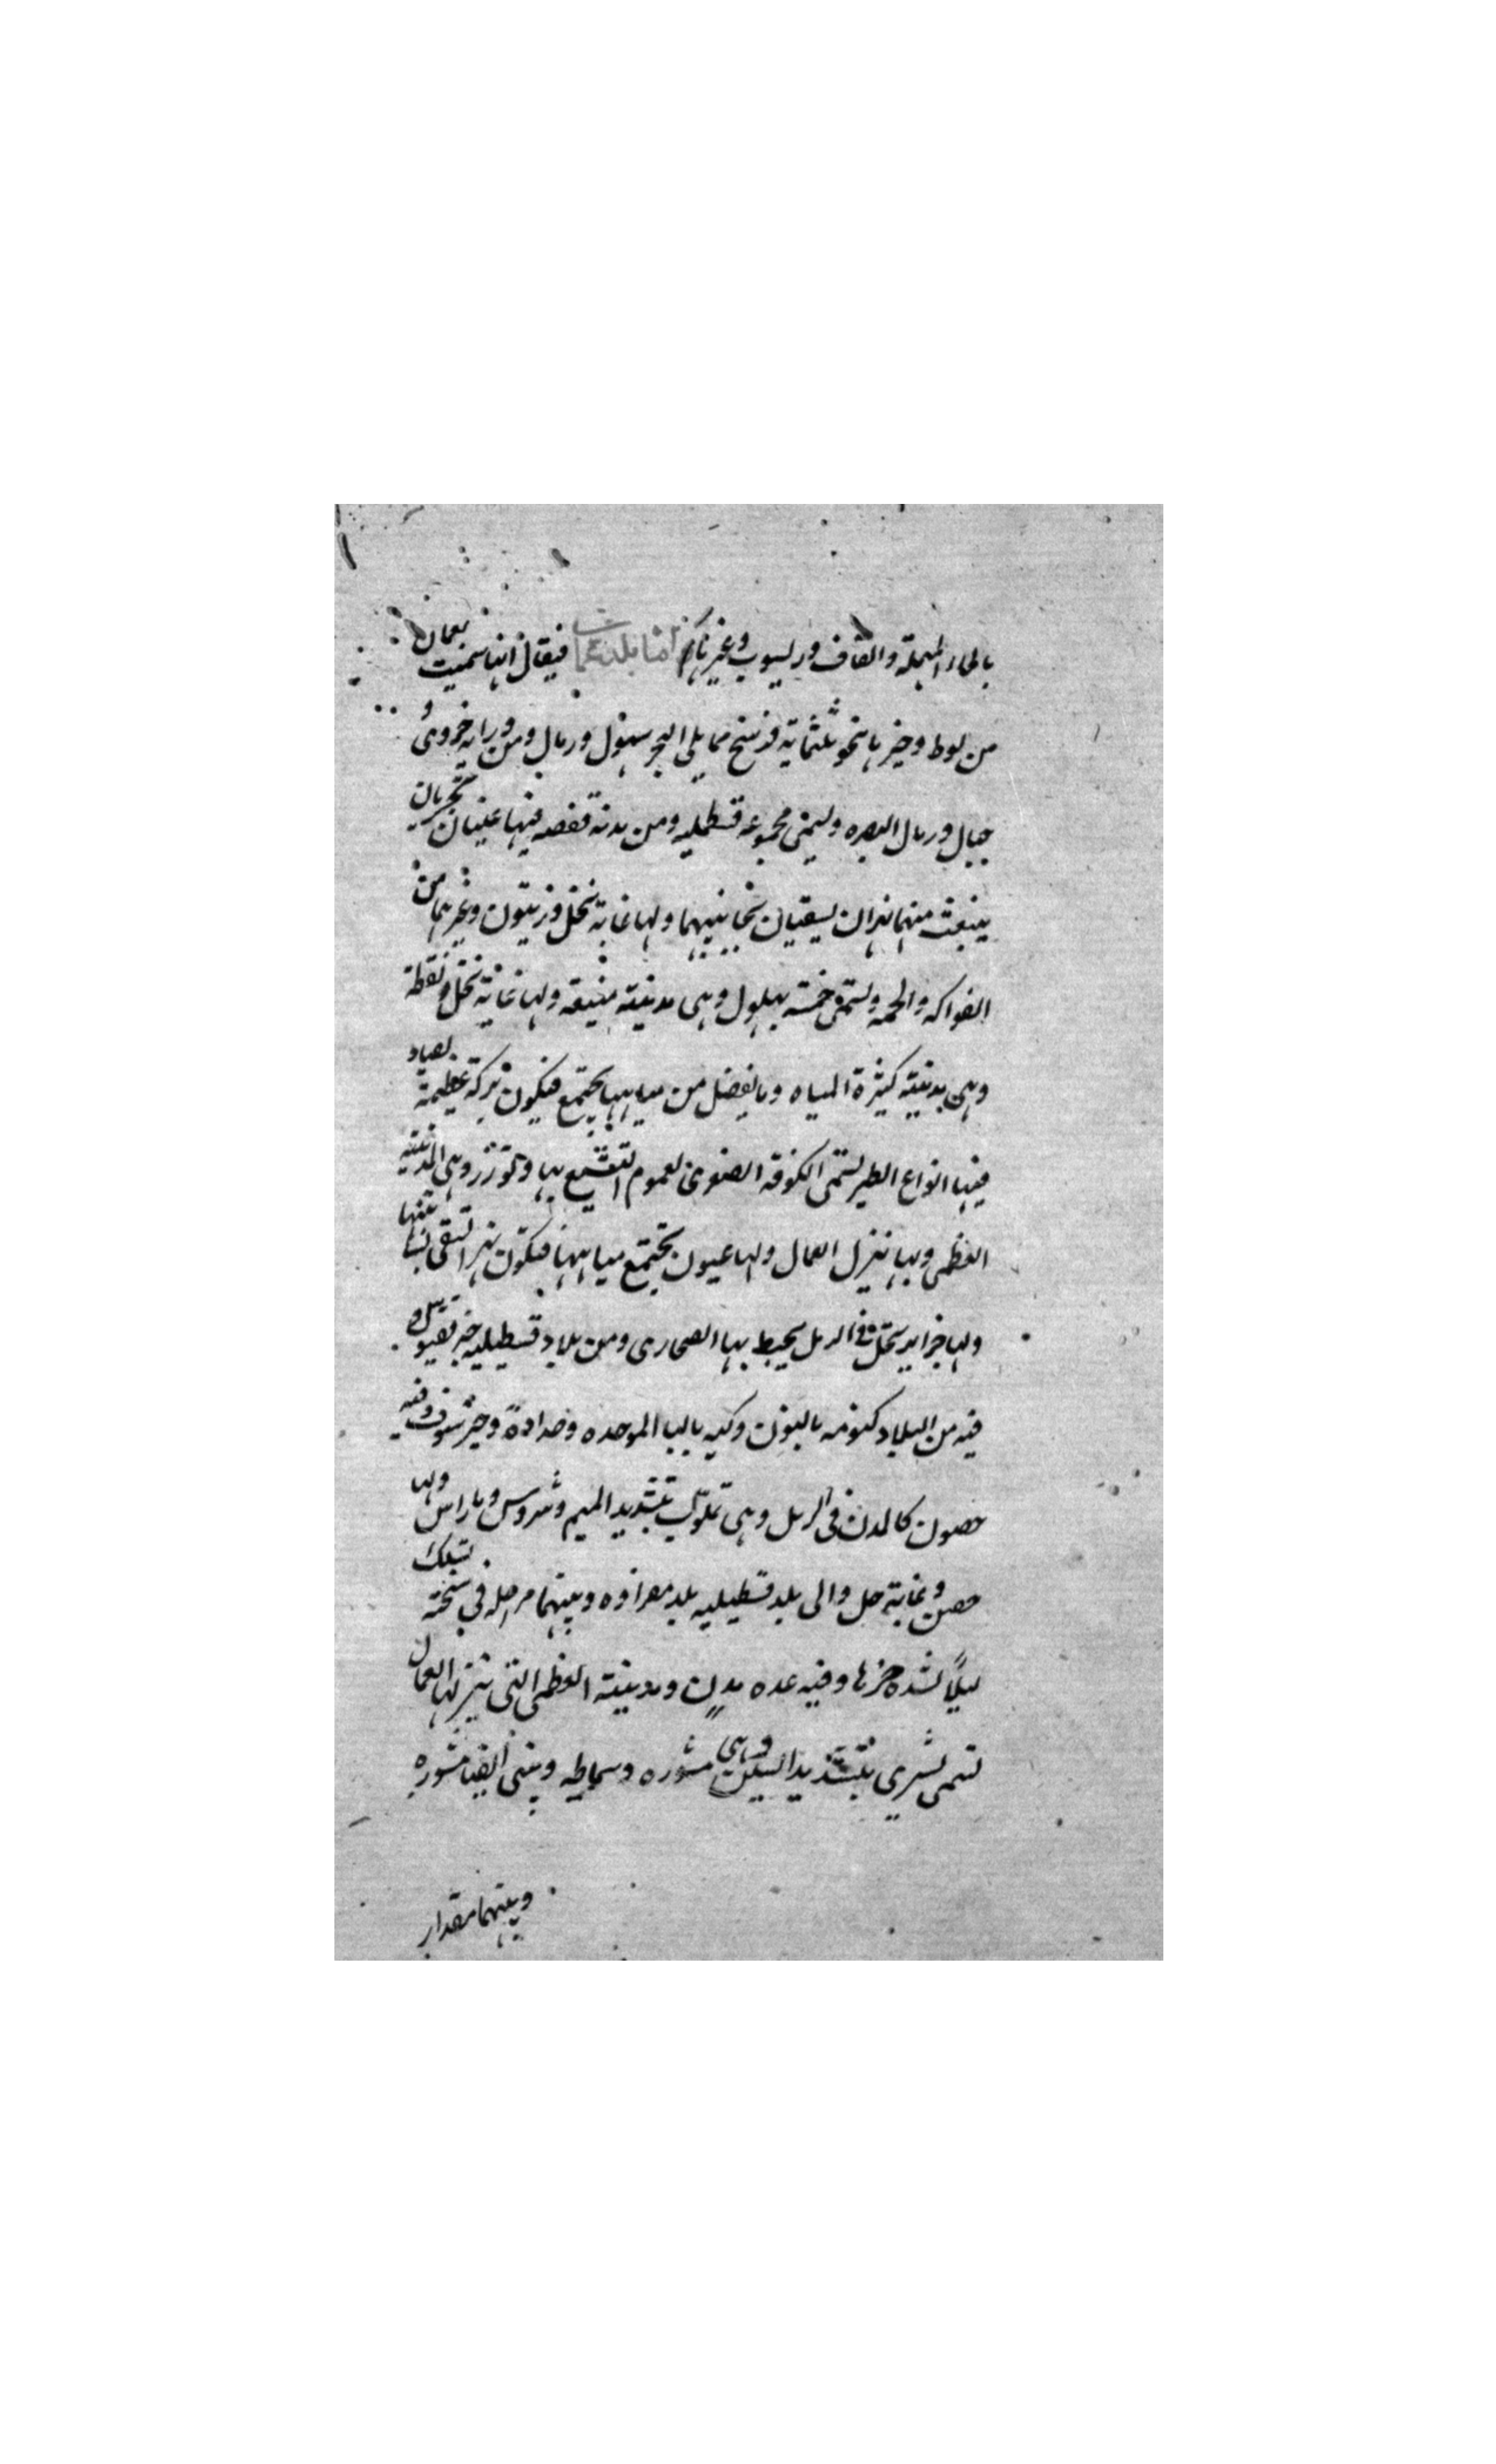 بالحاء المهملة والقاف وريسوب وغيرناكر امّا بلد عمان فيقال انها سميت بعمان
من لوط وحيزها نحو ثلثماية فرسخ مما يلى البحر سهول ورمال ومن ورايه حزوى و
جبال ورمال البصره وليمنى مجموعه قسطيليه ومن مدنه قفصه فيها عينان تجريان
ينبعث منهما نهران يسقيان بحانبيهما ولها غابة نخل وزيتون وغيرهما من
الفواكه والحمه وتسمى خمسة بهلول وهى مدينة منيعه ولها غابة نخل ونقطة
وهى مدينة كثيرة المياه وما يفضل من مياهها يجتمع فيكون بركة عظيمة يصاد
فيها انواع الطير تسمى الكوفه الصغرى لعموم التشيع بها وتوزر وهى المدينة
العظمى وبها ينزل العمال ولها عيون يجتمع مياهها فيكون نهرا تسقى بساتينها
ولها جزاير نخل فى الرمل يحيط بها الصحارى ومن بلاد قسطيليه حيز تقيوس و
فيه من البلاد كنومه بالنون وكبه بالبا الموحده وحدادة وحيز شوف وفيه
حصون كالمدن فى الرمل وهى تملوك بتشديد الميم وشروس وباراس ولها
حصن وغابة حل والى بلد قسطيليه بلد مغراوه وبينهما مرحله في سبخة تسلك
ليلًا لشده حرها وفيه عده مدن ومدينته العظمى التى ينزلها العمال
تسمى بشري بتشديد السين وهى مشوره وسماطه وبنى ايضا مشوره
وبينهما مقدار